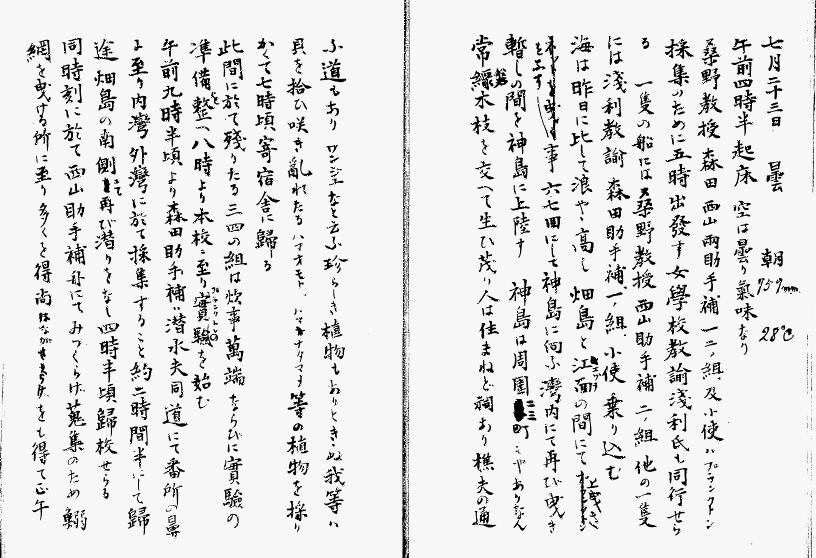 七月二十三日　曇　朝 759mm 28℃
午前四時半起床 空は曇り氣味なり
桑野教授 森田 西山 両助手補 一二ノ組 及 小使ハプランクトン
採集のために五時出發す 女學校教諭淺利氏も同行せら
る 一隻の船には桑野教授 西山助手補 二ノ組 他の一隻
には淺利教諭 森田助手補 一ノ組 小使 乗り込む
海は昨日に比して浪やゝ髙し 畑島と江面の間にて上曳き
事 六七回にして神島に向ふ 湾内にて再び曳き
暫しの間を神島に上陸す 神島は周圍二三町ミやありなん
常緑木枝を交へて生ひ茂り人は住まねど祠あり樵夫の通
ふ道もあり ワンジュなど云ふ珍らしき植物もありときゝぬ 我等ハ
貝を拾ひ咲き亂れたるハマオモト、ハマナタマメ等の植物を採り
かくて七時頃寄宿舎に歸る
此間に於て残りたる三四の組は炊事萬端ならびに實驗の
準備を整へ八時より本校ニ至り實驗を始む
午前九時半頃より森田助手補ハ潜水夫同道にて番所の鼻
に至り内灣外灣に於て採集すること約二時間半にして歸
途 畑島の南側にて再び潜りをなし四時半頃歸校せらる
同時刻に於て西山助手補舟にてみつくらげ蒐集のため鰯
網を曳ける所に至り多くを得 尚はながさくらげをも得て正午